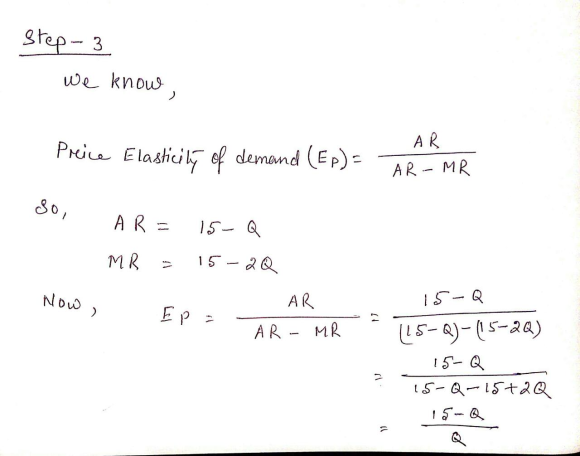 Step - 3
we know,
Price Elasticity of demand (EP) = AR / AR - MR
So,
AR = 15 - Q
MR = 15 - 2Q
Now, EP = AR / AR - MR = 15 - Q / (15 - Q) - (15 - 2Q)
= 15 - Q / 15 - Q - 15 + 2Q
= 15 - Q / Q